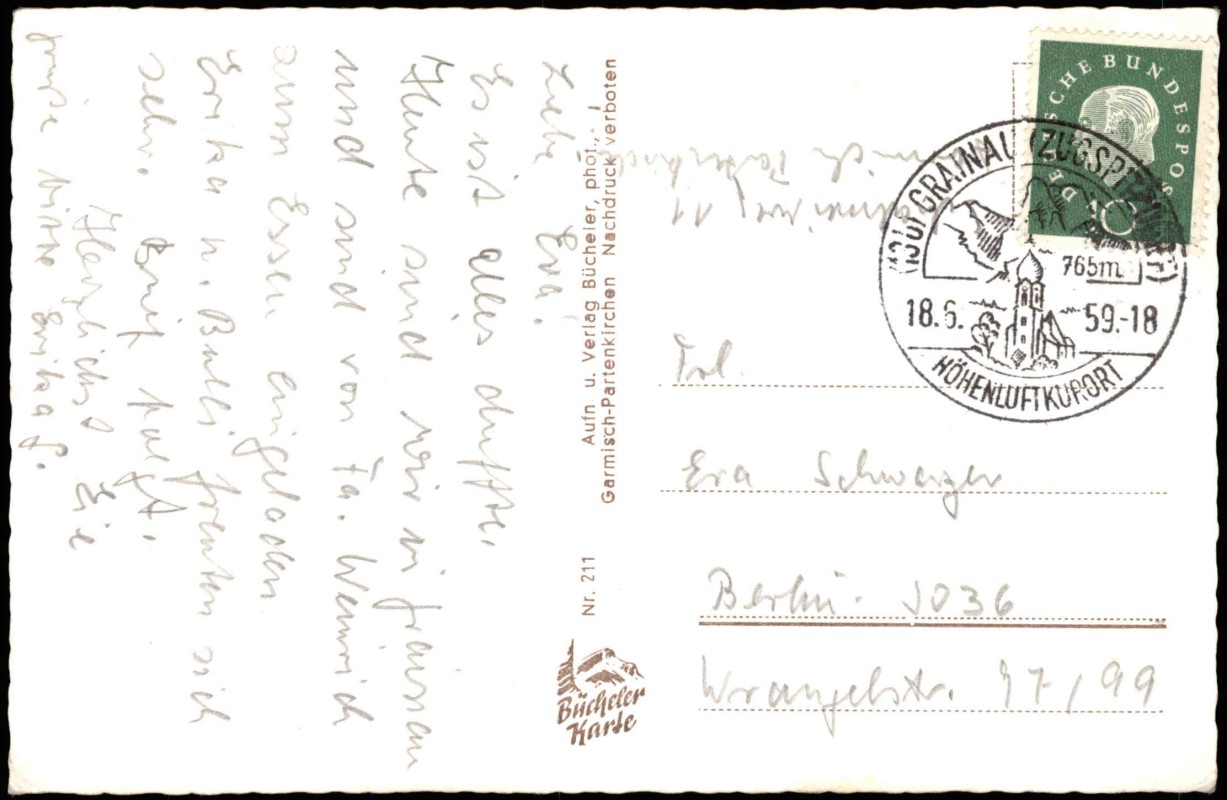 Liebe Eva!
Es ist alles dufte.
Heute sind wir in Grainau
und sind von Fa. Weinrich
zum Essen eingeladen
Erika u. Bulli freuten sich
sehr. Brief folgt.
Herzlichst Eie
Grüße Erika G.
Aufn u. Verlag Bücheler, phot.,
Garmisch-Partenkirchen Nachdruck verboten
Nr. 211
Bücheler
Karte
DEUTSCHE BUNDESPOST
10
(13b) GRAINAU (ZUGSPITZDORF)
765m
18.6. 59.-18
HÖHENLUFTKURORT
11
Frl.
Eva Schwarzer
Berlin. SO36
Wrangelstr. 97/99